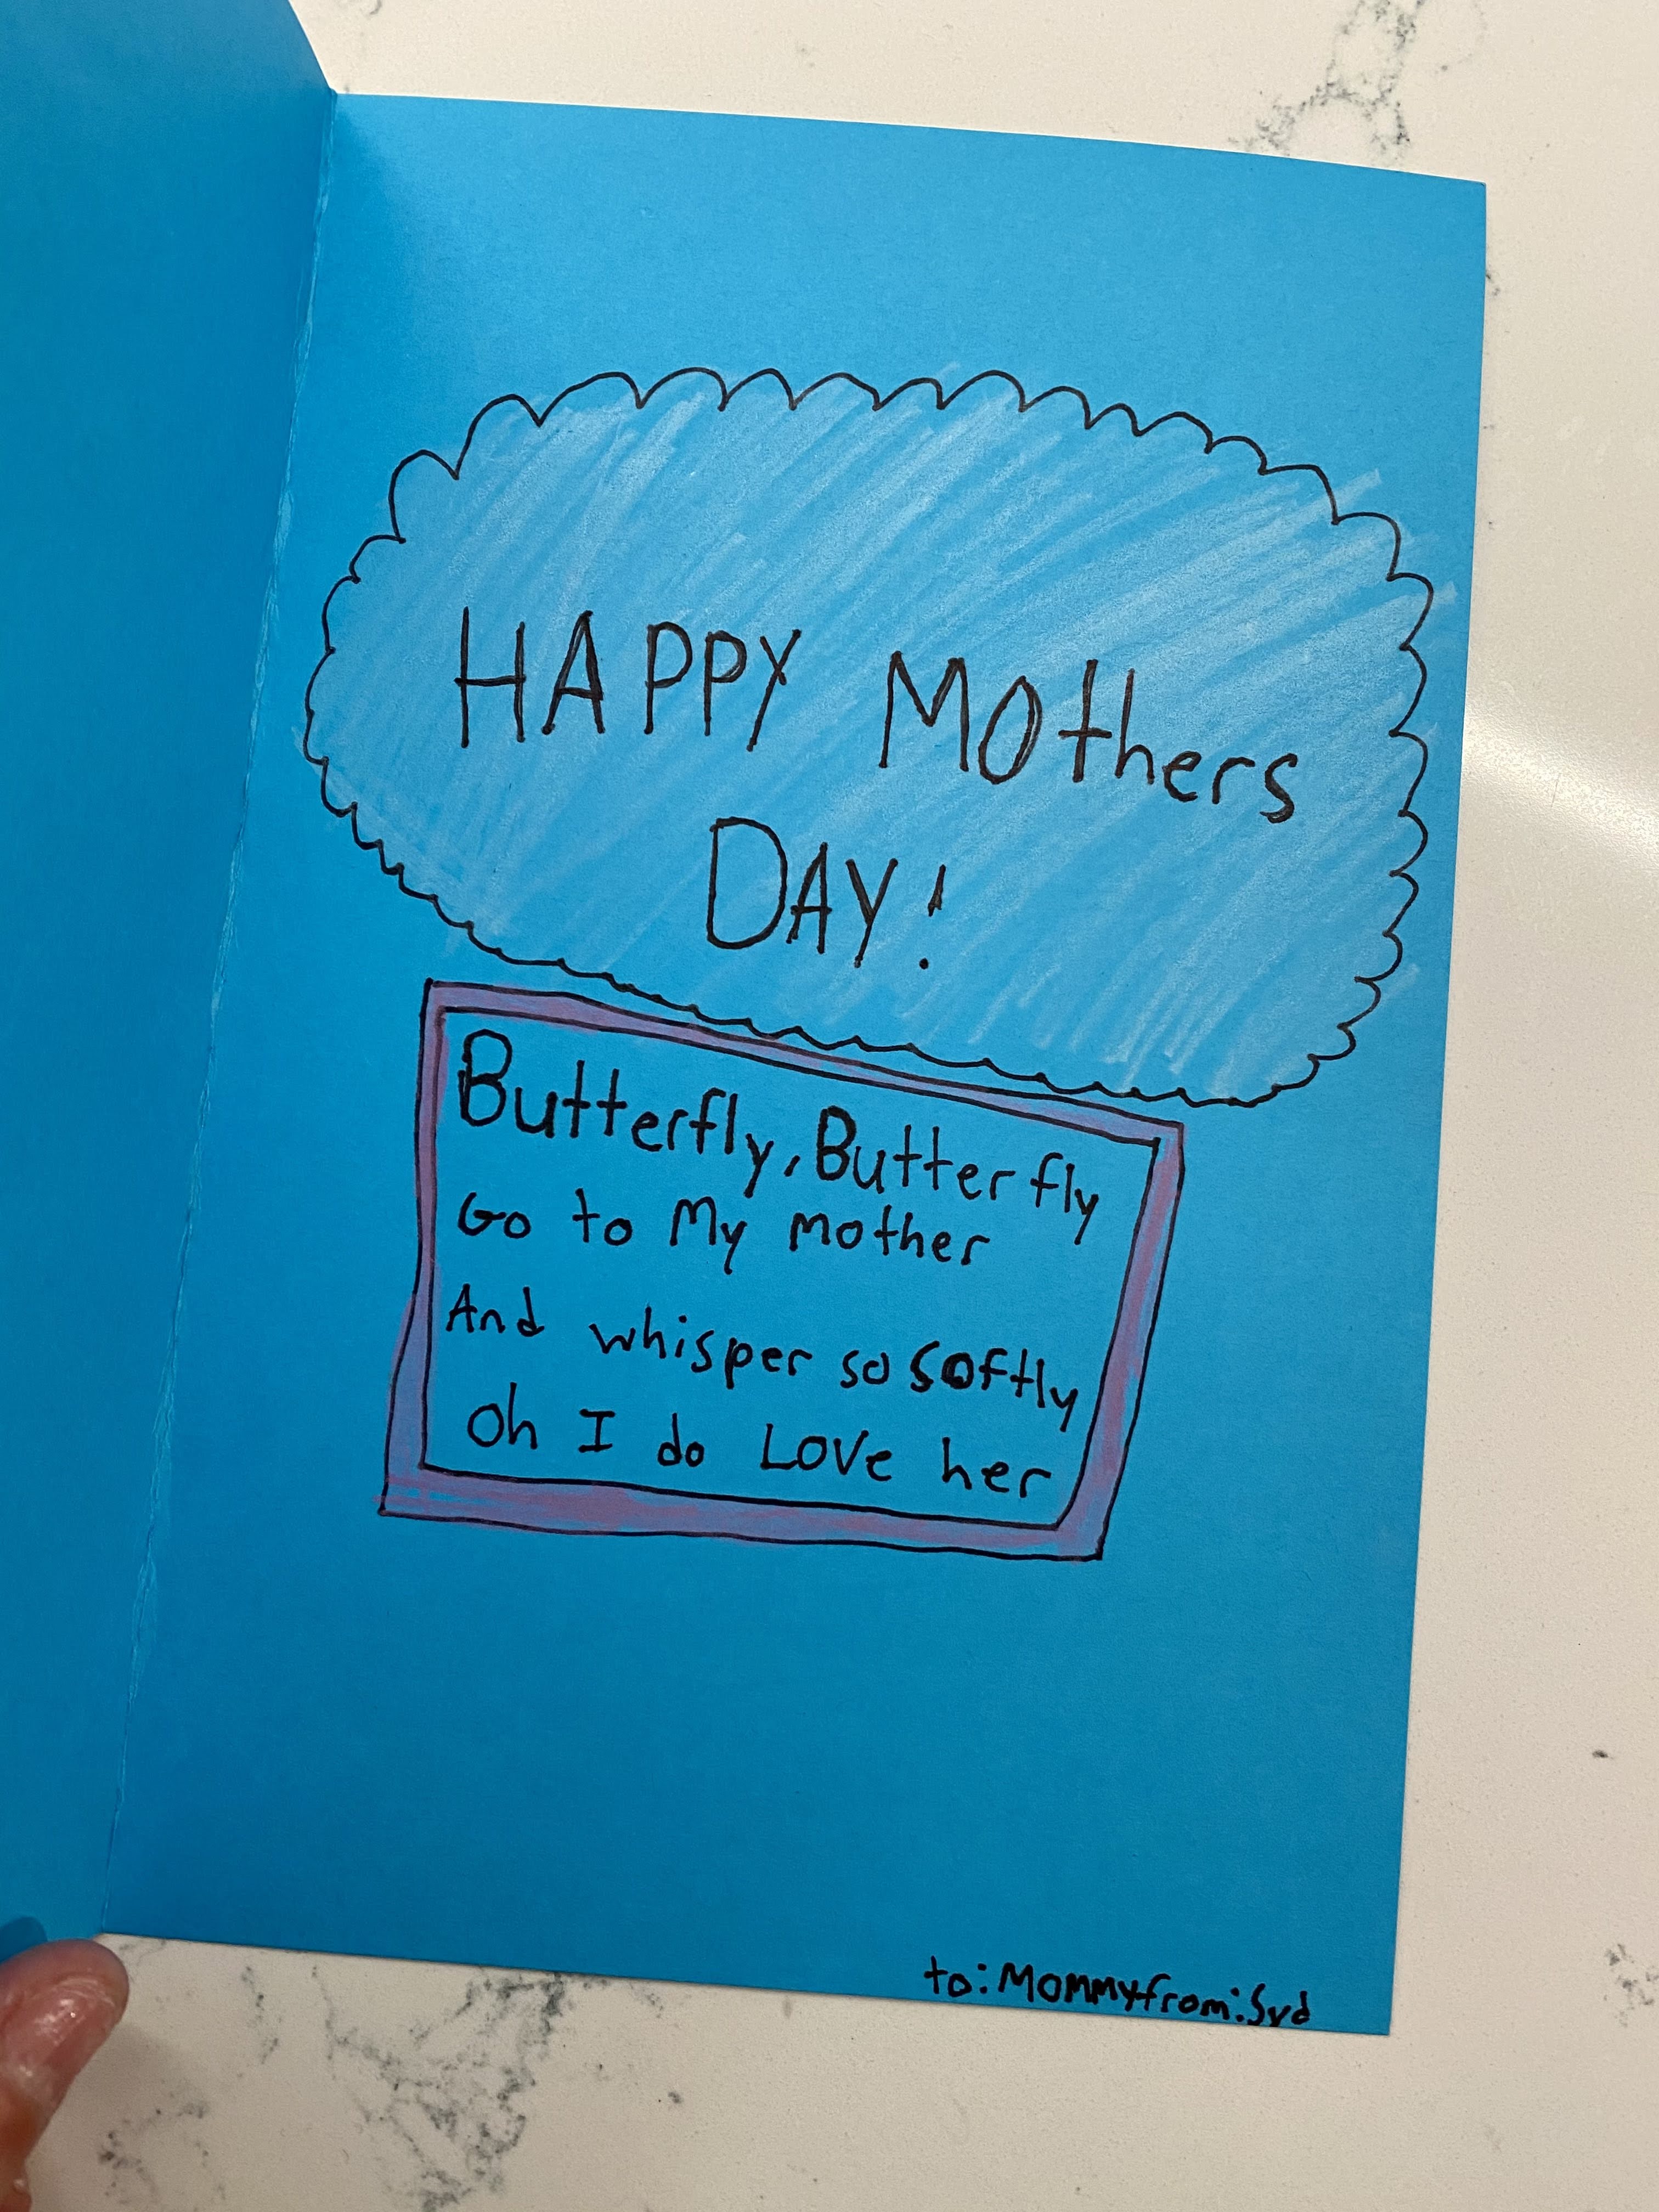 HAPPY MOthers
DAY!
Butterfly, Butterfly
Go to My mother
And whisper so softly
Oh I do LOVe her
to: MOMMy from: Syd